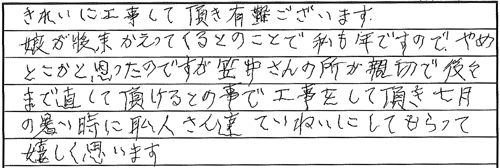 きれいに工事して頂き有難ございます.
娘が将来かえってくるとのことで私も年ですので、やめ
とこかと思ったのですが笠中さんの所が親切で後々
まで直して頂けるとの事で工事をして頂き七月
の暑い時に職人さん達ていねいにしてもらって
嬉しく思います